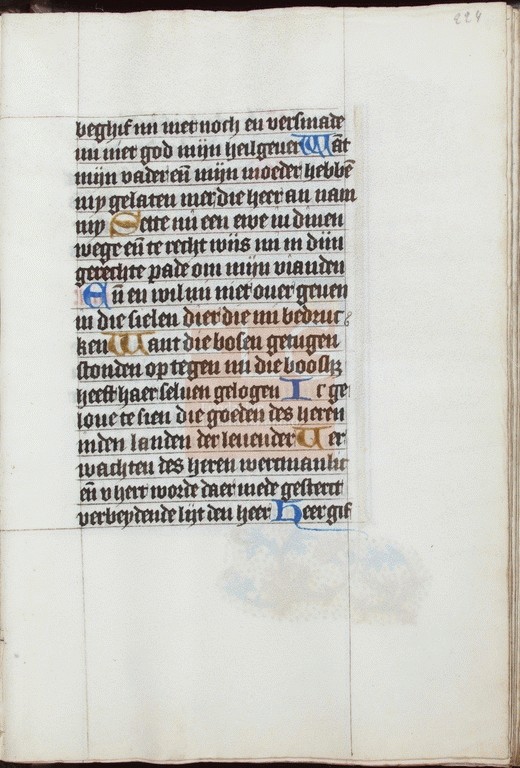 224
beghif mi niet noch en versmade
mi niet god mijn heilgever Wāt
mijn vader eñ mijn moeder hebbē
my gelaten mer die heer an nam
my Sette mi een ewe in dinen
wege eñ te recht wijs mi in dijn
gerechte pade om mijn vianden
Eñ en wil mi niet over geven
in die sielen dier die mi bedruc
ken Want die bosen getugen
stonden op tegen mi die boosh;
heeft haer selven gelogen Ic ge
love te sien die goeden des heren
inden landen der levender Ver
wachten des heren wert manlic
eñ v hert worde daer mede gesterct
verbeydende lijt den heer Heer gif